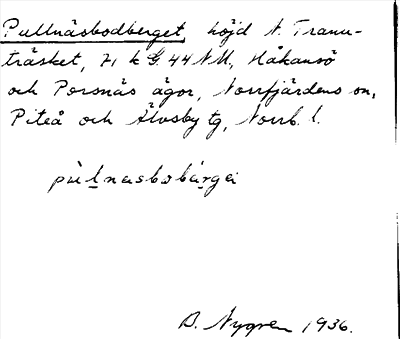 Pullnäsbodberget, höjd N. Tranu-
träsket, 71 k G. 44 NM, Håkansö
och Porsnäs ägor, Norrfjärdens sn,
Piteå och Älvsby tg, Norrb. l.
pùlnasbobárgei
D. Nygren 1936.